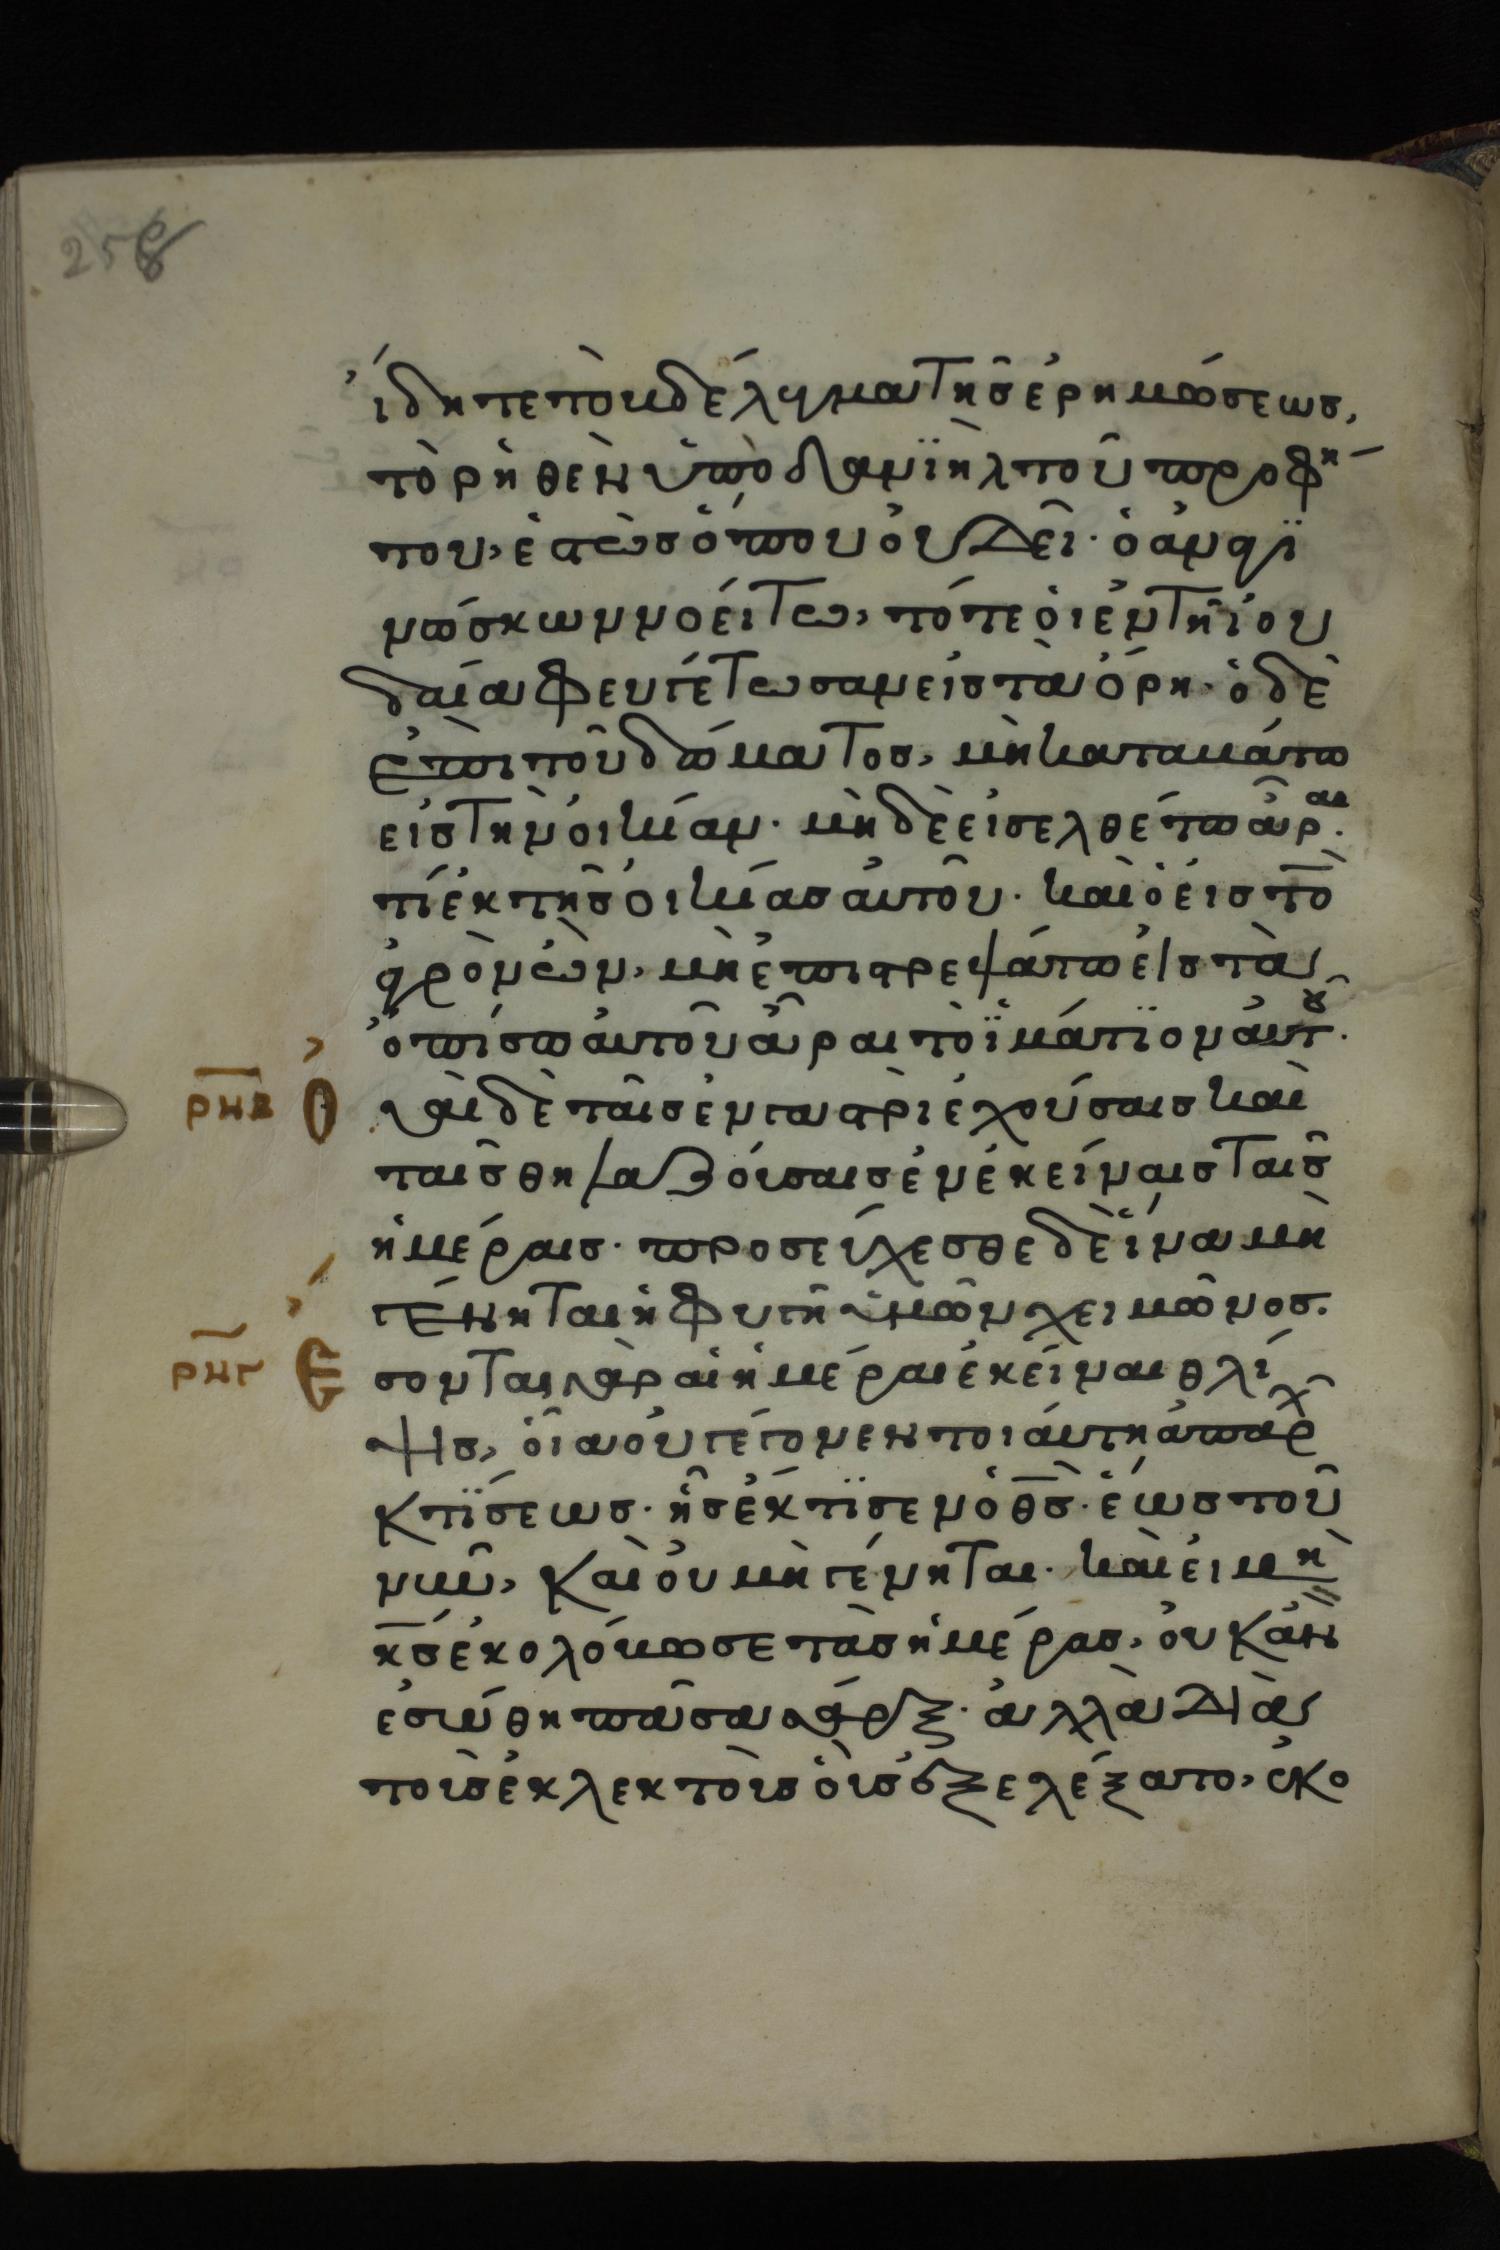 258
ἴδητε τὸ βδέλυγμα τῆς ἐρημώσεως,
τὸ ῥηθὲν ὑπὸ δανϊὴλ τοῦ προφή
του, ἑστὼς ὅπου οὐ δεῖ· ὁ ἀναγι
νώσκων νοείτω, τότε οἱ ἐν τῆ ἰου
δαία φευγέτωσαν εἰς τὰ ὄρη· ὁ δὲ
ἐπὶ τοῦ δώματος, μὴ καταβάτω
εἰς τὴν οἰκίαν· μὴ δὲ εἰσελθέτω ἆραι
τί ἐκ τῆς οἰκίας αὐτοῦ· καὶ ὁ εἰς τὸ
ἀγρὸν ὢν, μὴ ἐπιστρεψάτω εἰς τὰ
ὀπίσω αὐτοῦ ἆραι τὸ ἱμάτϊον αὐτοῦ·
ρμβ Ο ὐαὶ δὲ ταῖς ἐν γαστρὶ ἐχούσαις καὶ
ταῖς θηλαζούσαις ἐν ἐκείναις ταῖς
ἡμέραις· προσεύχεσθε δὲ ἵνα μὴ
γένηται ἡ φυγὴ ὑμῶν χειμῶνος·
ρμγ Ε σονται γὰρ αἱ ἡμέραι ἐκείναι θλί
ψις, οἵα οὐ γέγονεν τοιάυτη ἀπαρχῆς
κτίσεως· ἧς ἔκτϊσεν ὁ θς· ἕως τοῦ
νῦν, καὶ οὐ μὴ γένηται· καὶ εἰ μὴ
κς ἐκολόβωσε τὰς ἡμέρας, οὐκ ἂν
ἐσώθη πᾶσα σάρξ· ἀλλὰ διὰ
τοὺς ἐκλεκτοὺς οὓς ἐξελέξατο, ἐκο